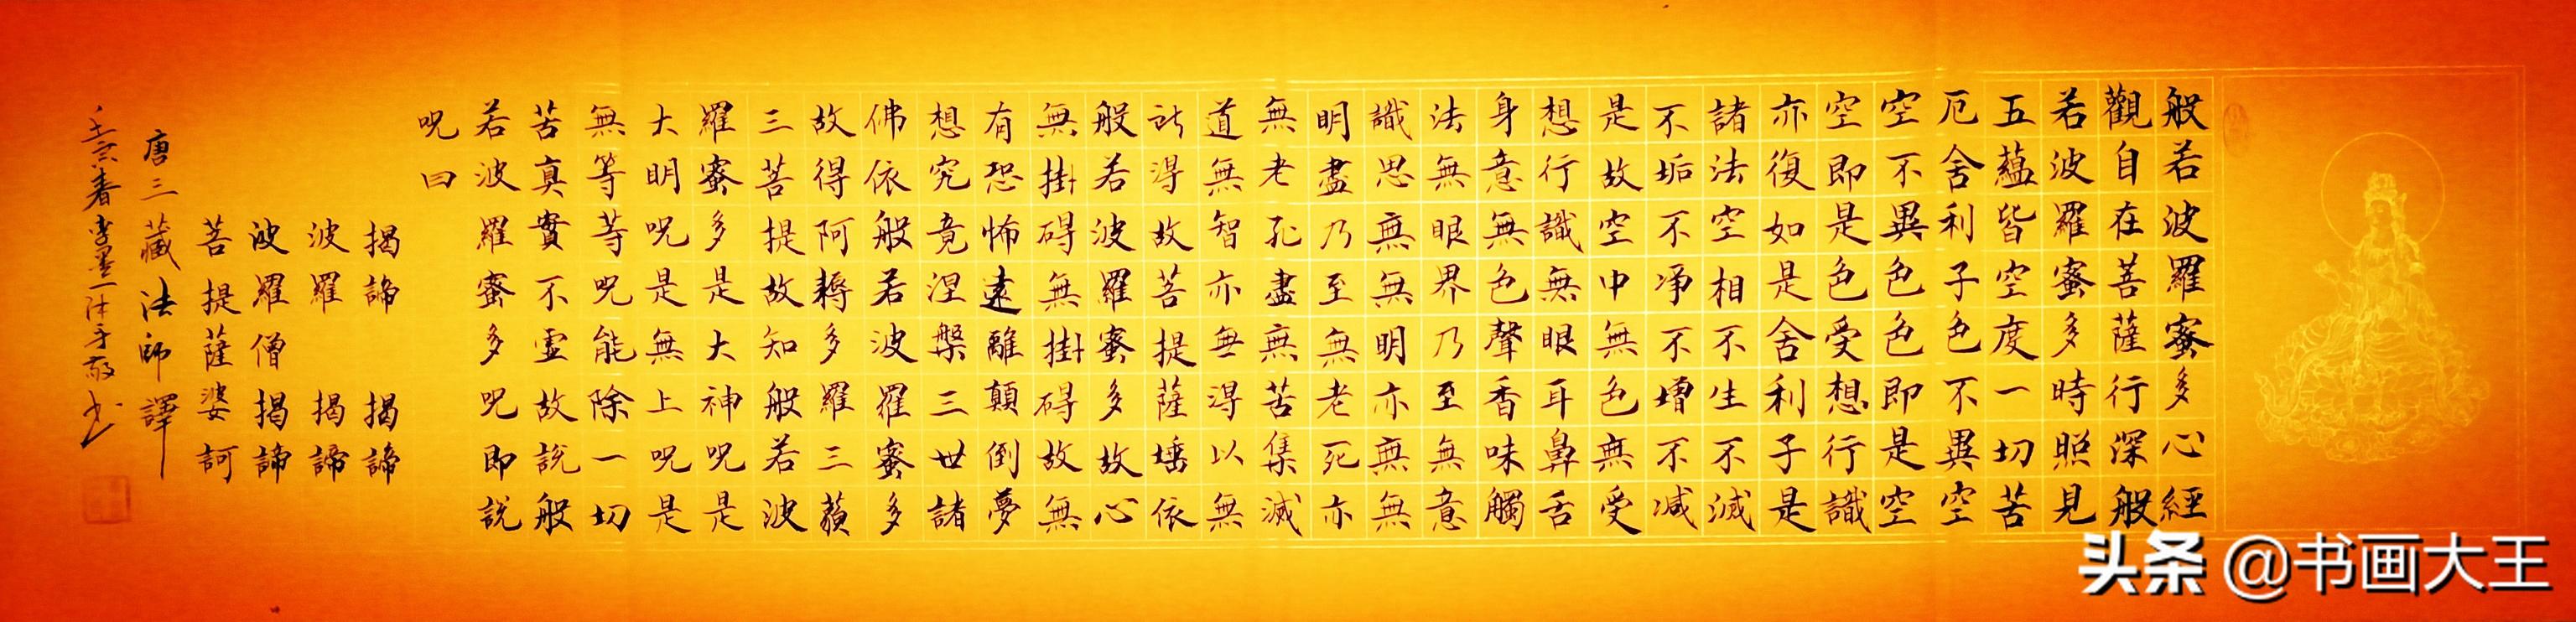 般若波羅蜜多心經
觀自在菩薩行深般
若波羅蜜多時照見
五蘊皆空度一切苦
厄舍利子色不異空
空不異色色即是空
空即是色受想行識
亦復如是舍利子是
諸法空相不生不滅
不垢不淨不增不減
是故空中無色無受
想行識無眼耳鼻舌
身意無色聲香味觸
法無眼界乃至無意
識思無無明亦無無
明盡乃至無老死亦
無老死盡無苦集滅
道無智亦無得以無
所得故菩提薩埵依
般若波羅蜜多故心
無掛碍無掛碍故無
有恐怖遠離顛倒夢
想究竟涅槃三世諸
佛依般若波羅蜜多
故得阿耨多羅三藐
三菩提故知般若波
羅蜜多是大神呪是
大明呪是無上呪是
無等等呪能除一切
苦真實不虛故說般
若波羅蜜多呪即說
呪曰
揭諦 揭諦
波羅 揭諦
波羅僧揭諦
菩提薩婆訶
唐三藏法師譯
壬寅春李墨一沐手敬书
头条 @书画大王